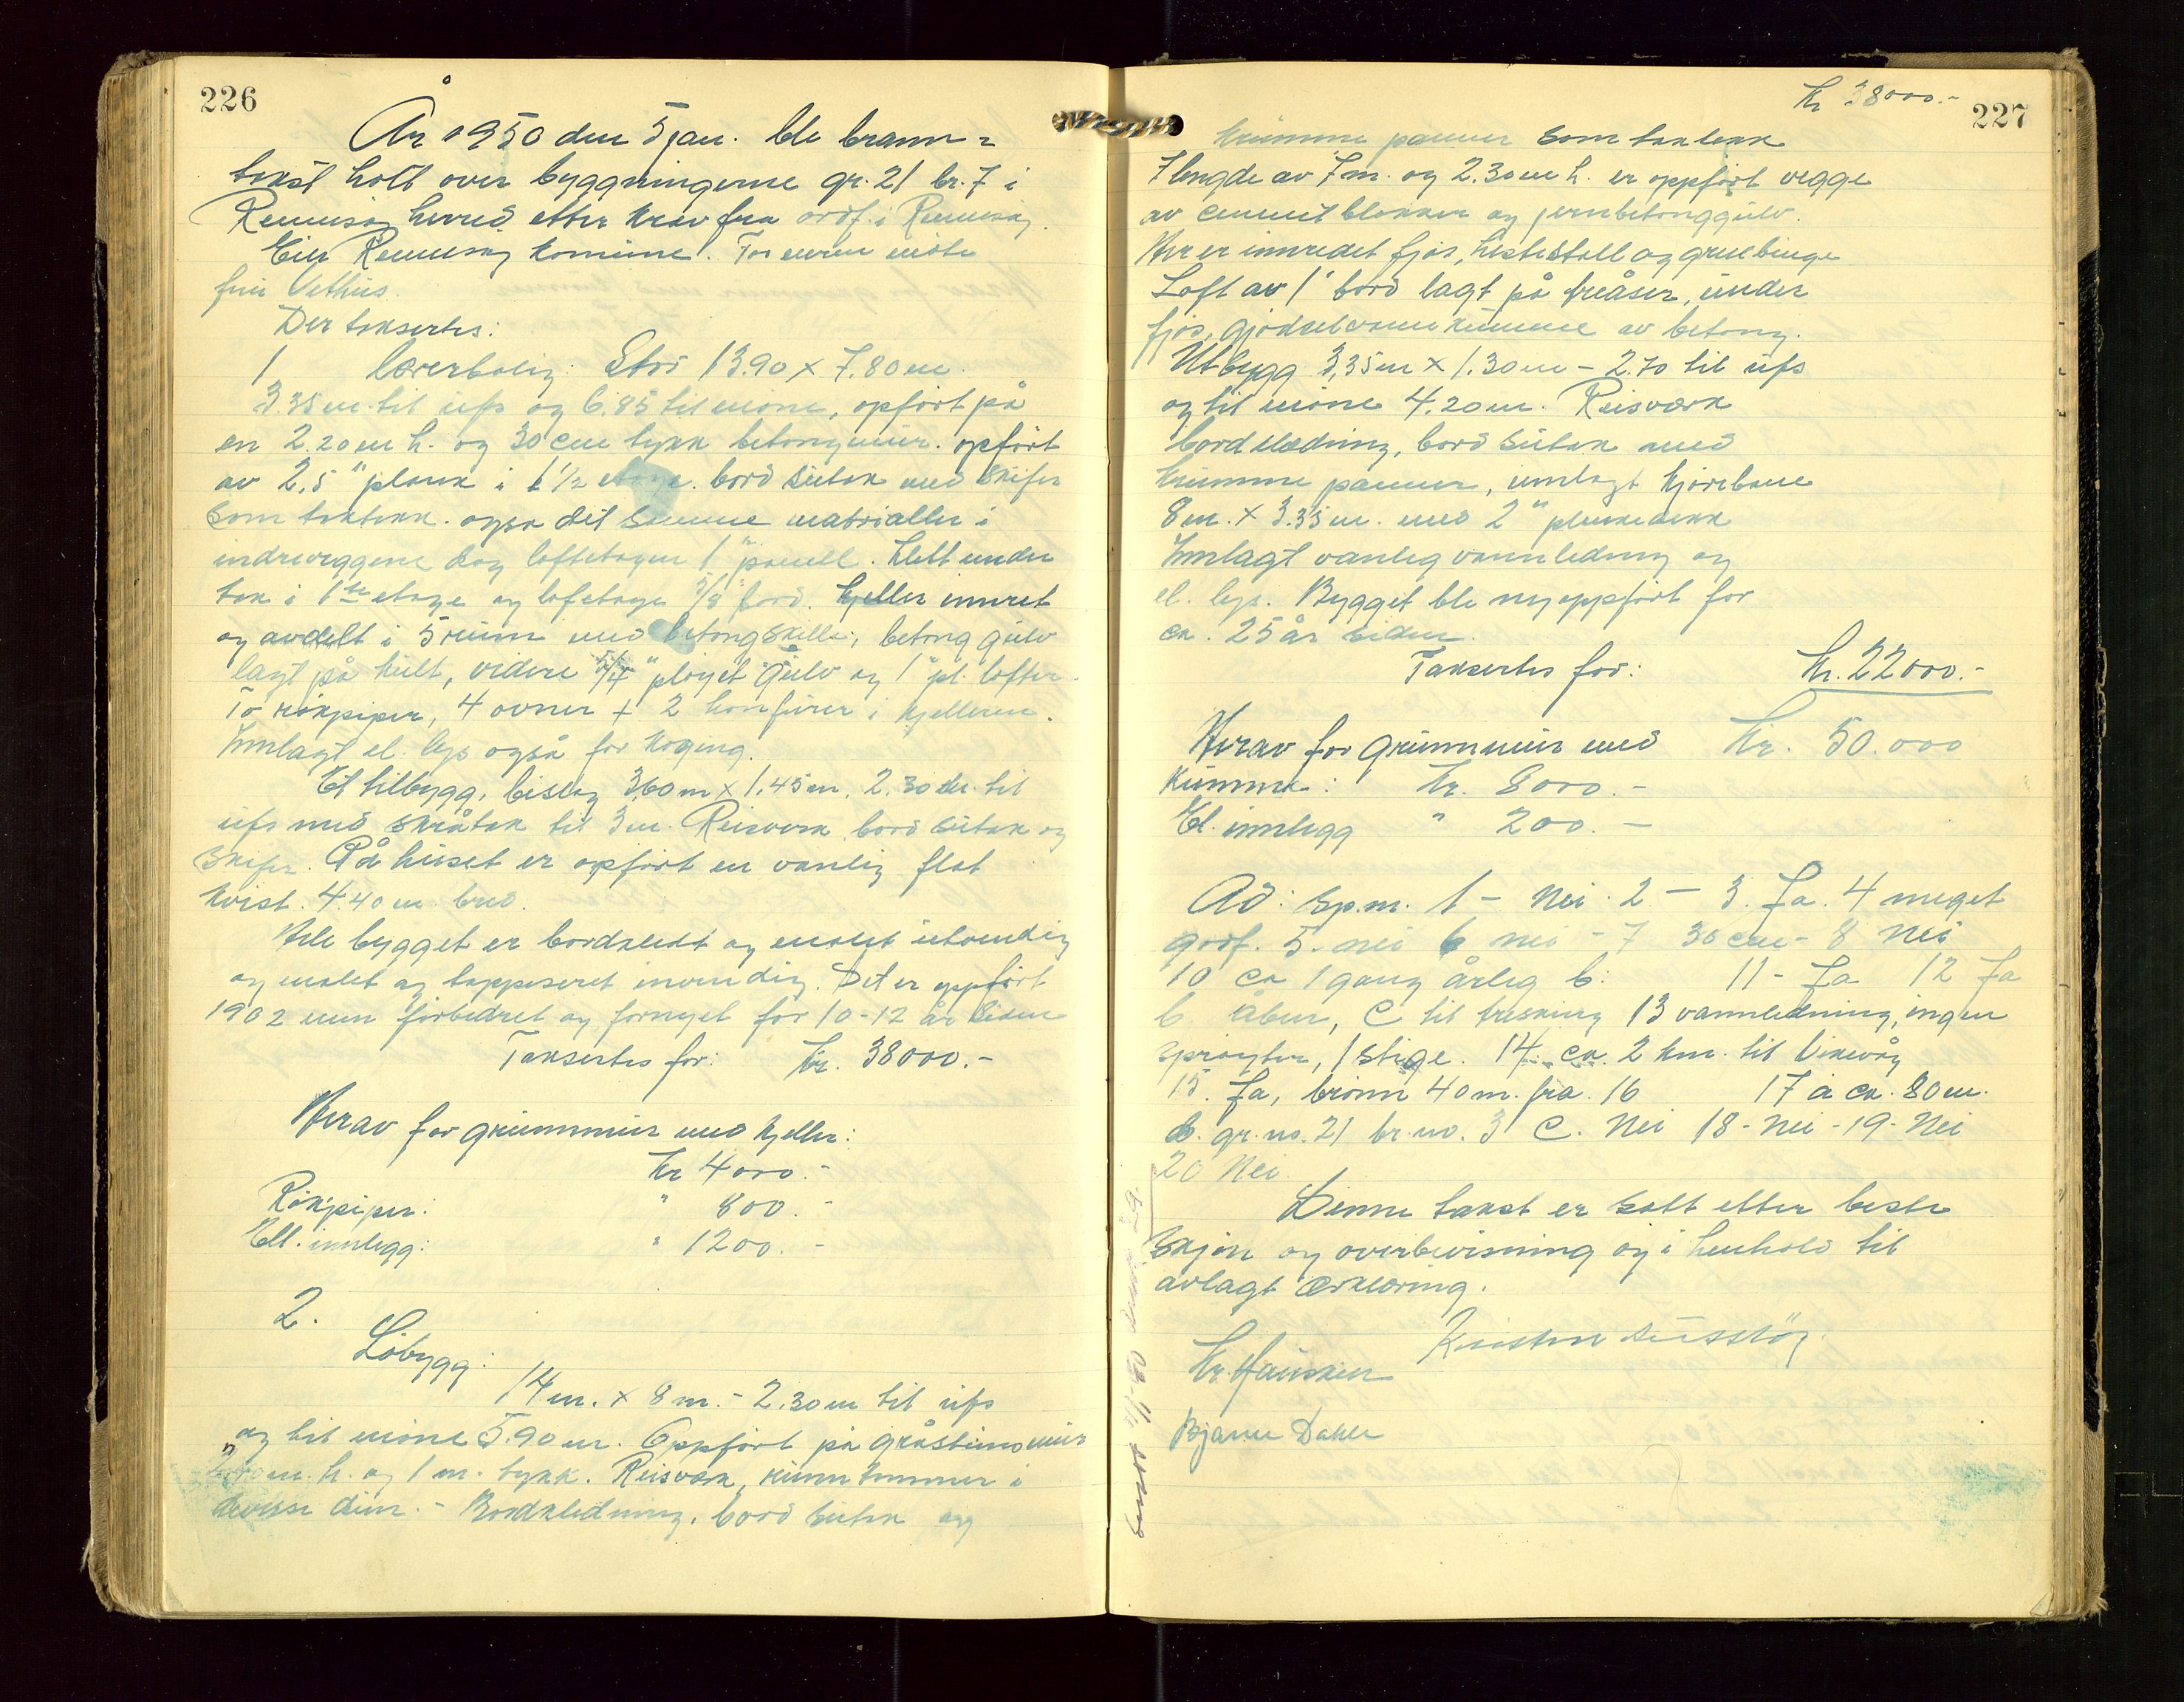 226
År 1950 den 5 jan. ble brann-
takst holt over byggningerne gr. 21 br. 7 i
Rennesøy herred etter krav fra ordf. i Rennesøy.
Eier Rennesøy komune. For eieren møtte
Vethus.
Der taksertes:
1 Lærerbolig: Stor 13.90 x 7.80 m.
3.35 m. til ufs og 6.85 til møne, opført på
en 2.20 m h. og 30 cm tykk betongmur. opført
av 2,5" plank i 1 1/2 etage. bord sutak med skifer
som taktekk. også det samme matrialler i
indreveggene og loftetagen 1" panell. Slett under
tak i 1ste etage og lofetage 5/8 bord. Kjeller innret
og avdelt i 5 rum med betongskille, betong gulv
lagt på kult, videre 5/4" pløyet gulv og 1" pl. lofter.
To røkpiper, 4 ovner + 2 komfurer i kjelleren.
Innlagt el. lys også for koging.
Et tilbygg, bislag 3.60 m x 1.45 m. 2.30 m. til
ufs med skråtak til 3 m. Reisverk bord sutak og
skifer. På huset er opført en vanlig flat
kvist. 4.40 m. bred.
Hele bygget er bordkledt og malet utvendig
og malet og tappeseret invendig. Det er oppført
1902 men forbedret og fornyet for 10-12 år siden
Taksertes for: kr. 38000.-
Herav for grunnmur med kjeller:
kr 4000.-
Røkpiper: " 800.-
Ell. innlegg: " 1200.-
2.
Løbygg:
14 m. x 8 m. - 2.30 m til ufs
og til møne 5.90 m. Oppført på gråstensmur
m. h. og 1 m. tykk. Reisverk, runn tømmer i
devisse dim. - Bordkledning, bord sutak og
227
kr 38000.-
krumme panner som taktekk
I lengde av 7 m. og 2.30 m h. er oppført vegge
av cementblokker og jernbetonggulv.
Her er innredet fjøs, hestestall og grisebinge
Loft av 1" bord lagt på treåser, under
fjøs, gjødselvannkumme av betong.
Utbygg 3.35 m x 1.30 m - 2.70 til ufs
og til møne 4.20 m. Reisværk
bordklædning, bord sutak med
krumme panner, innlagt kjørebane
8 m. x 3.35 m. med 2" plankedekk
Innlagt vanleg vannledning og
el. lys. Bygget ble nyoppført for
ca. 25 år siden.
Taksertes for: kr. 22000.-
Herav for grunnmur med kr. 50.000
kumme: kr. 8000.-
El. innlegg " 200.-
Ad: sp.m. 1 - Nei. 2 - 3. Ja. 4 meget
godt. 5. nei 6 nei - 7 30 cm - 8 Nei
10 ca 1 gang årlig b: 11 - Ja 12 Ja
b. åben, C til tresking 13 vannledning, ingen
sprøyter, 1 stige. 14. ca. 2 km. til Vikevåg
15. Ja, brønn 40 m. fra. 16 17 a ca. 80 m.
b. gr. no. 21 br. no. 3 C. Nei 18 - Nei - 19 - Nei
20 Nei.
Denne takst er satt etter beste
skjøn og overbevisning og i henhold til
avlagt erklæring.
Kr. Hausken
Bjarne Dahle